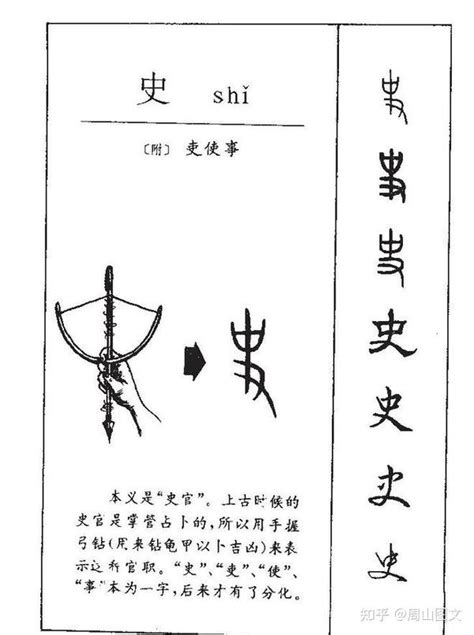 史 shǐ
〔附〕 吏使事
本义是“史官”。上古时候的
史官是掌管占卜的，所以用手握
弓钻(用来钻龟甲以卜吉凶)来表
示这种官职。“史”、“吏”、“使”、
“事”本为一字，后来才有了分化。
史
史
史
史
史
史
史
史
知乎 @周山图文